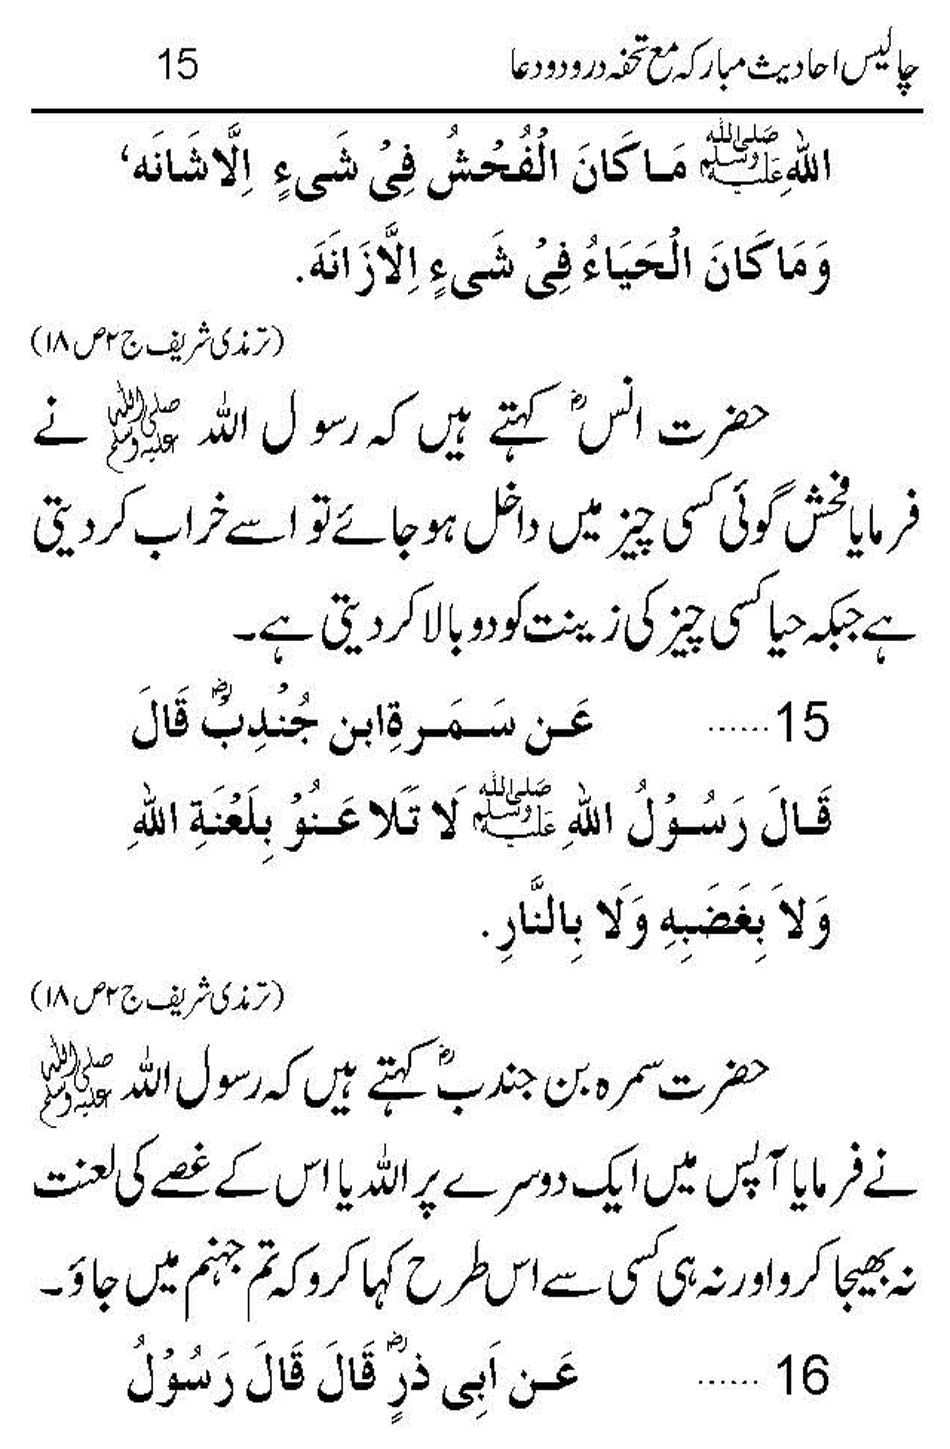 چالیس احادیث مبارکہ مع تحفہ درود و دعا 15
اللهِ ﷺ مَا كَانَ الْفُحْشُ فِىْ شَىءٍ اِلَّا شَانَه‘
وَمَا كَانَ الْحَيَاءُ فِىْ شَىءٍ اِلَّا زَانَهَ.
(ترمذی شریف ج ۲ ص ۱۸)
حضرت انسؓ کہتے ہیں کہ رسول اللہ ﷺ نے
فرمایا فحش گوئی کسی چیز میں داخل ہو جائے تو اسے خراب کر دیتی
ہے جبکہ حیا کسی چیز کی زینت کو دو بالا کر دیتی ہے۔
15 ...... عَن سَمَرةِ ابن جُنْدِبؓ قَالَ
قَالَ رَسُوْلُ اللهِ ﷺ لَا تَلاعَنُوْ بِلَعْنَةِ اللهِ
وَلاَ بِغَضَبِهِ وَلَا بِالنَّارِ.
(ترمذی شریف ج ۲ ص ۱۸)
حضرت سمرہ بن جندبؓ کہتے ہیں کہ رسول اللہ ﷺ
نے فرمایا آپس میں ایک دوسرے پر اللہ یا اس کے غصے کی لعنت
نہ بھیجا کرو اور نہ ہی کسی سے اس طرح کہا کرو کہ تم جہنم میں جاؤ۔
16 ...... عَن اَبِى ذرٍؓ قَالَ قَالَ رَسُوْلُ